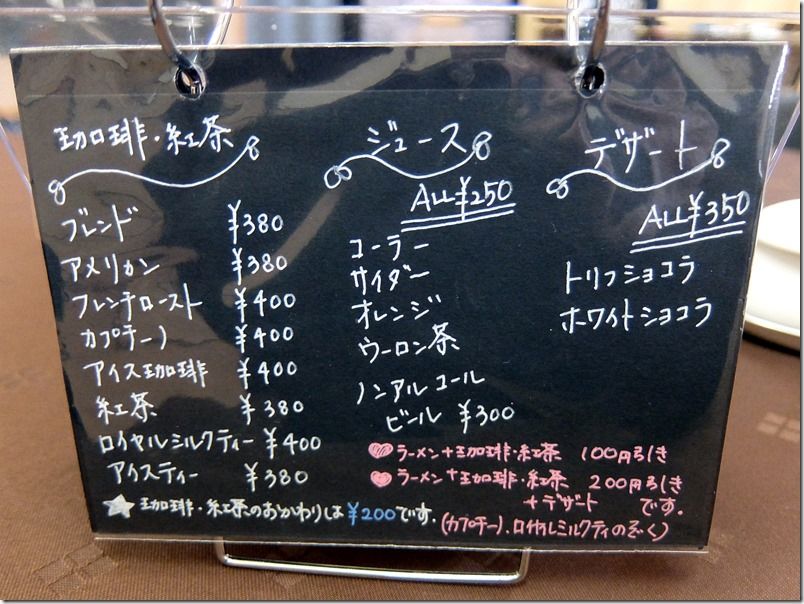 珈琲・紅茶
ブレンド ¥380
アメリカン ¥380
フレンチロースト ¥400
カプチーノ ¥400
アイス珈琲 ¥400
紅茶 ¥380
ロイヤルミルクティー ¥400
アイスティー ¥380
ジュース
ALL¥250
コーラー
サイダー
オレンジ
ウーロン茶
ノンアルコール
ビール ¥300
デザート
ALL¥350
トリフショコラ
ホワイトショコラ
♥ラーメン+珈琲・紅茶 100円引き
♥ラーメン+珈琲・紅茶 200円引き
+デザート です。
(カプチーノ、ロイヤルミルクティのぞく)
★珈琲・紅茶のおかわりは¥200です。